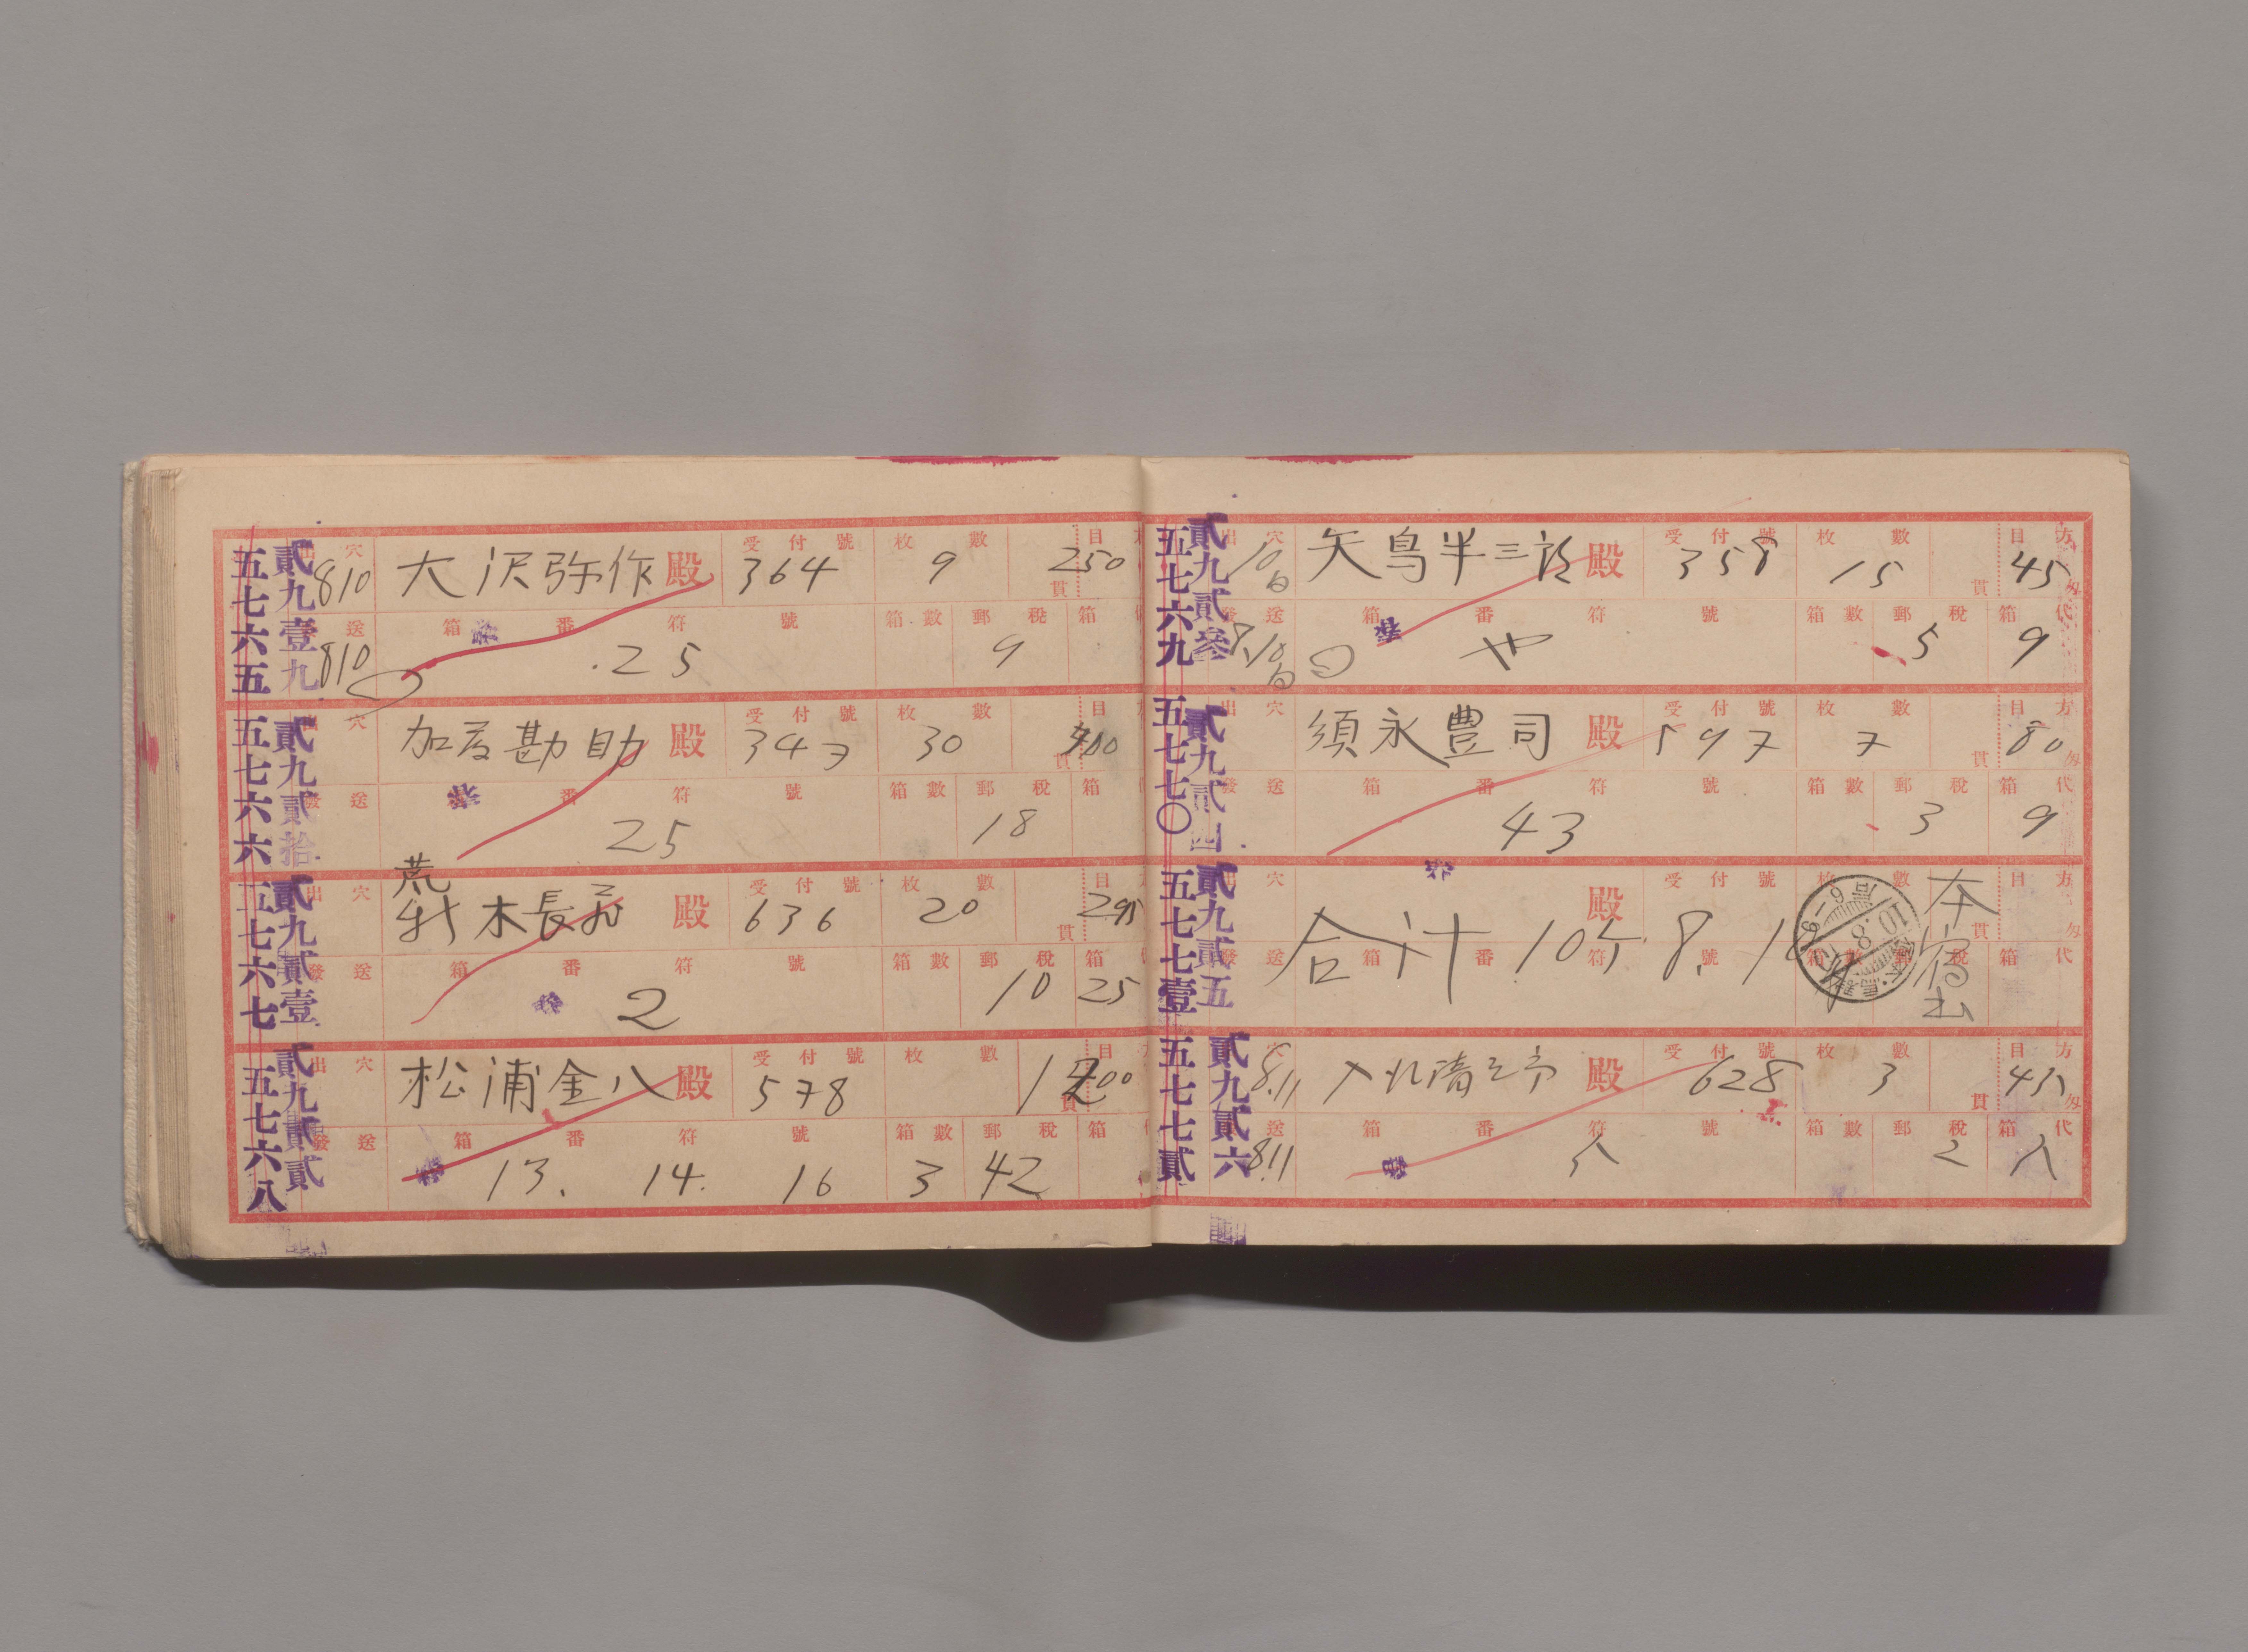 五七六五 貳九壹九
出穴 810 大沢弥作 殿 受付號 364 枚數 9 貫 目 250
發送 810 箱番符號 25 箱數 郵稅 9 箱
五七六六 貳九貳拾
出穴 加藤勘助 殿 受付號 347 枚數 30 貫 目
發送 箱番符號 25 箱數 郵稅 18 箱
五七六七 貳九貳壹
荒
出穴 木長 殿 受付號 636 枚數 20 貫 目 295
發送 箱番符號 2 箱數 郵稅 10 箱 25
五七六八 貳九貳貳
出穴 松浦金八 殿 受付號 578 枚數 貫 目
發送 箱番符號 13. 14. 16 箱數 3 郵稅 42 箱
五七六九 貳九貳參
出穴 10日 矢島半三郎 殿 受付號 358 枚數 15 貫 目方 45 匁
發送 箱番符號 や 箱數 郵稅 5 箱代 9
五七七〇 貳九貳四
出穴 須永豊司 殿 受付號 597 枚數 7 貫 目方 80 匁
發送 箱番符號 43 箱數 郵稅 3 箱代 9
五七七壹 貳九貳五
出穴 殿 受付號 枚數 貫 目方 匁
合計 10ケ 8.10
發送 箱番符號 箱數 郵稅 箱代
10.8.10
本宿出
五七七貳 貳九貳六
出穴 8.11 殿 受付號 628 枚數 3 貫 目方 45 匁
發送 8.11 箱番符號 箱數 郵稅 2 箱代